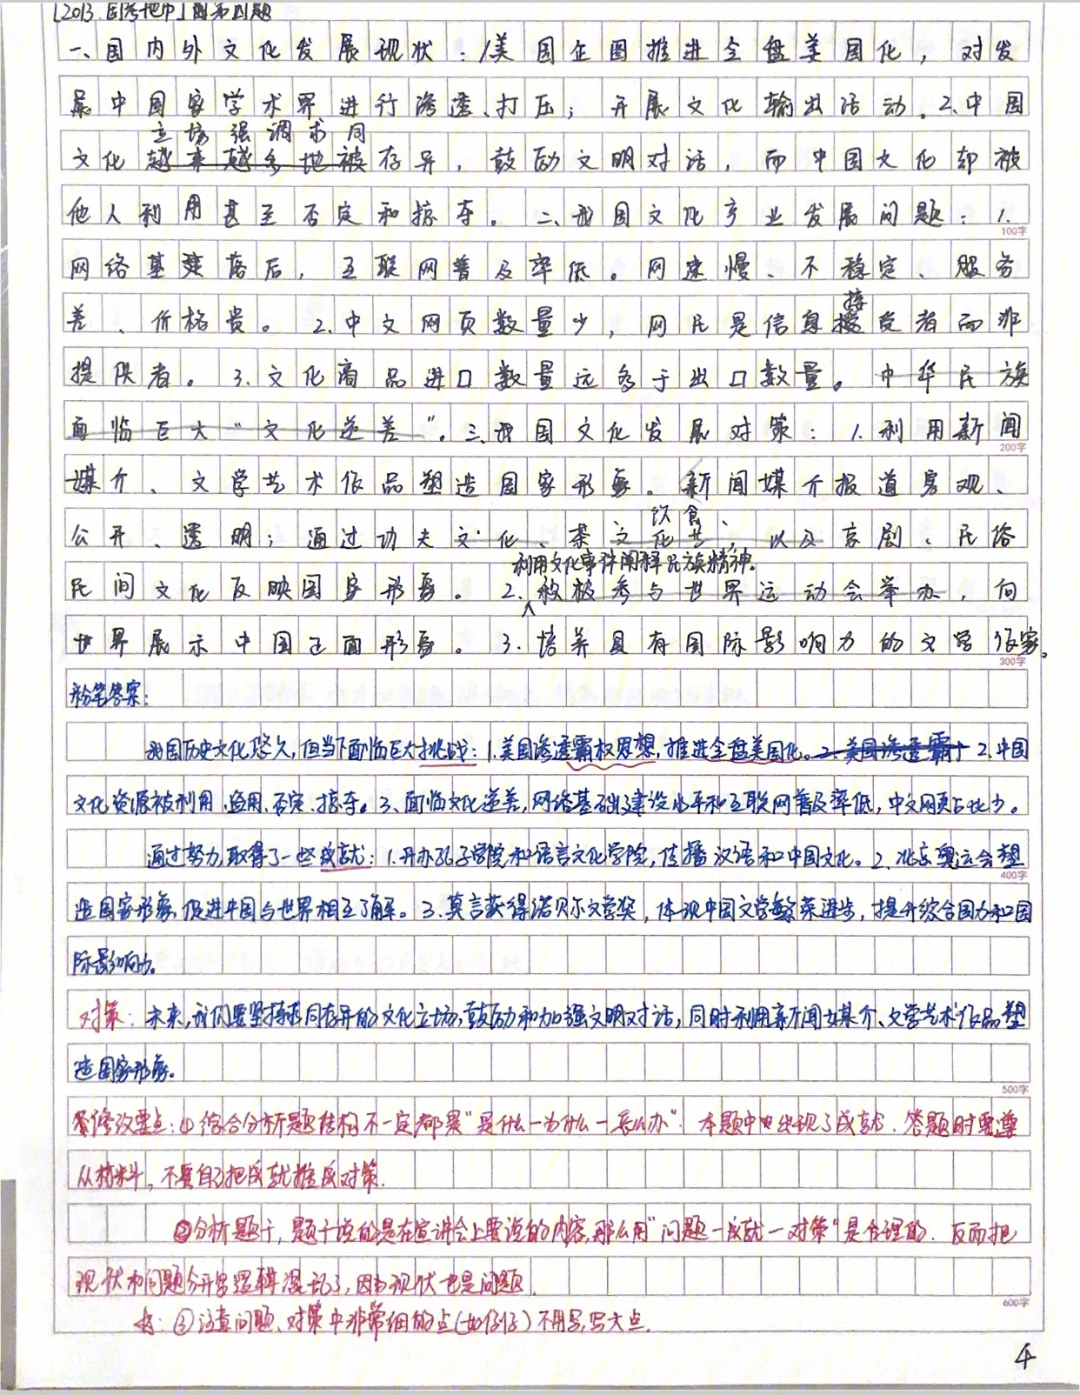 [2013.国考地市]副省第四题
一、国内外文化发展现状：1.美国企图推进全盘美国化，对发
展中国家学术界进行渗透、打压；开展文化输出活动。2.中国
立场强调求同
文化越来越多地被存异，鼓励文明对话，而中国文化却被
他人利用甚至否定和掠夺。二、我国文化产业发展问题：1.
100字
网络基建落后，互联网普及率低。网速慢、不稳定、服务
接
差、价格贵。2.中文网页数量少，网民是信息接受者而非
提供者。3.文化商品进口数量远多于出口数量。中华民族
面临巨大“文化逆差”。三、我国文化发展对策：1.利用新闻
200字
媒介、文学艺术作品塑造国家形象。新闻媒介报道客观、
饮食、
公开、透明；通过功夫文化、茶文化等，以及京剧、民俗
利用文化事件阐释民族精神。
民间文化反映国家形象。2.积极参与世界运动会举办，向
世界展示中国正面形象。3.培养具有国际影响力的文学作家。
300字
粉笔答案：
我国历史文化悠久，但当下面临巨大挑战：1.美国渗透霸权思想，推进全盘美国化。2.美国渗透霸 2.中国
文化资源被利用、滥用、否定、掠夺。3.面临文化逆差，网络基础建设水平和互联网普及率低，中文网页占比少。
通过努力取得了一些成就：1.开办孔子学院和语言文化学院，传播汉语和中国文化。2.北京奥运会塑
400字
造国家形象，促进中国与世界相互了解。3.莫言获得诺贝尔文学奖，体现中国文学繁荣进步，提升综合国力和国
际影响力。
对策：未来，我们要坚持求同存异的文化立场，鼓励和加强文明对话，同时利用新闻媒介、文学艺术作品塑
造国家形象。
500字
修改要点：①综合分析题结构不一定都是“是什么—为什么—怎么办”．本题中也出现了成就．答题时要遵
从材料，不要自己把成就推成对策．
②分析题干，题干说的是在宣讲会上要说的内容，那么用“问题—成就—对策”是合理的．反而把
现状和问题分开写逻辑混乱了，因为现状也是问题．
600字
③注意问题、对策中非常细的点(如例子)不用写，写大点．
4